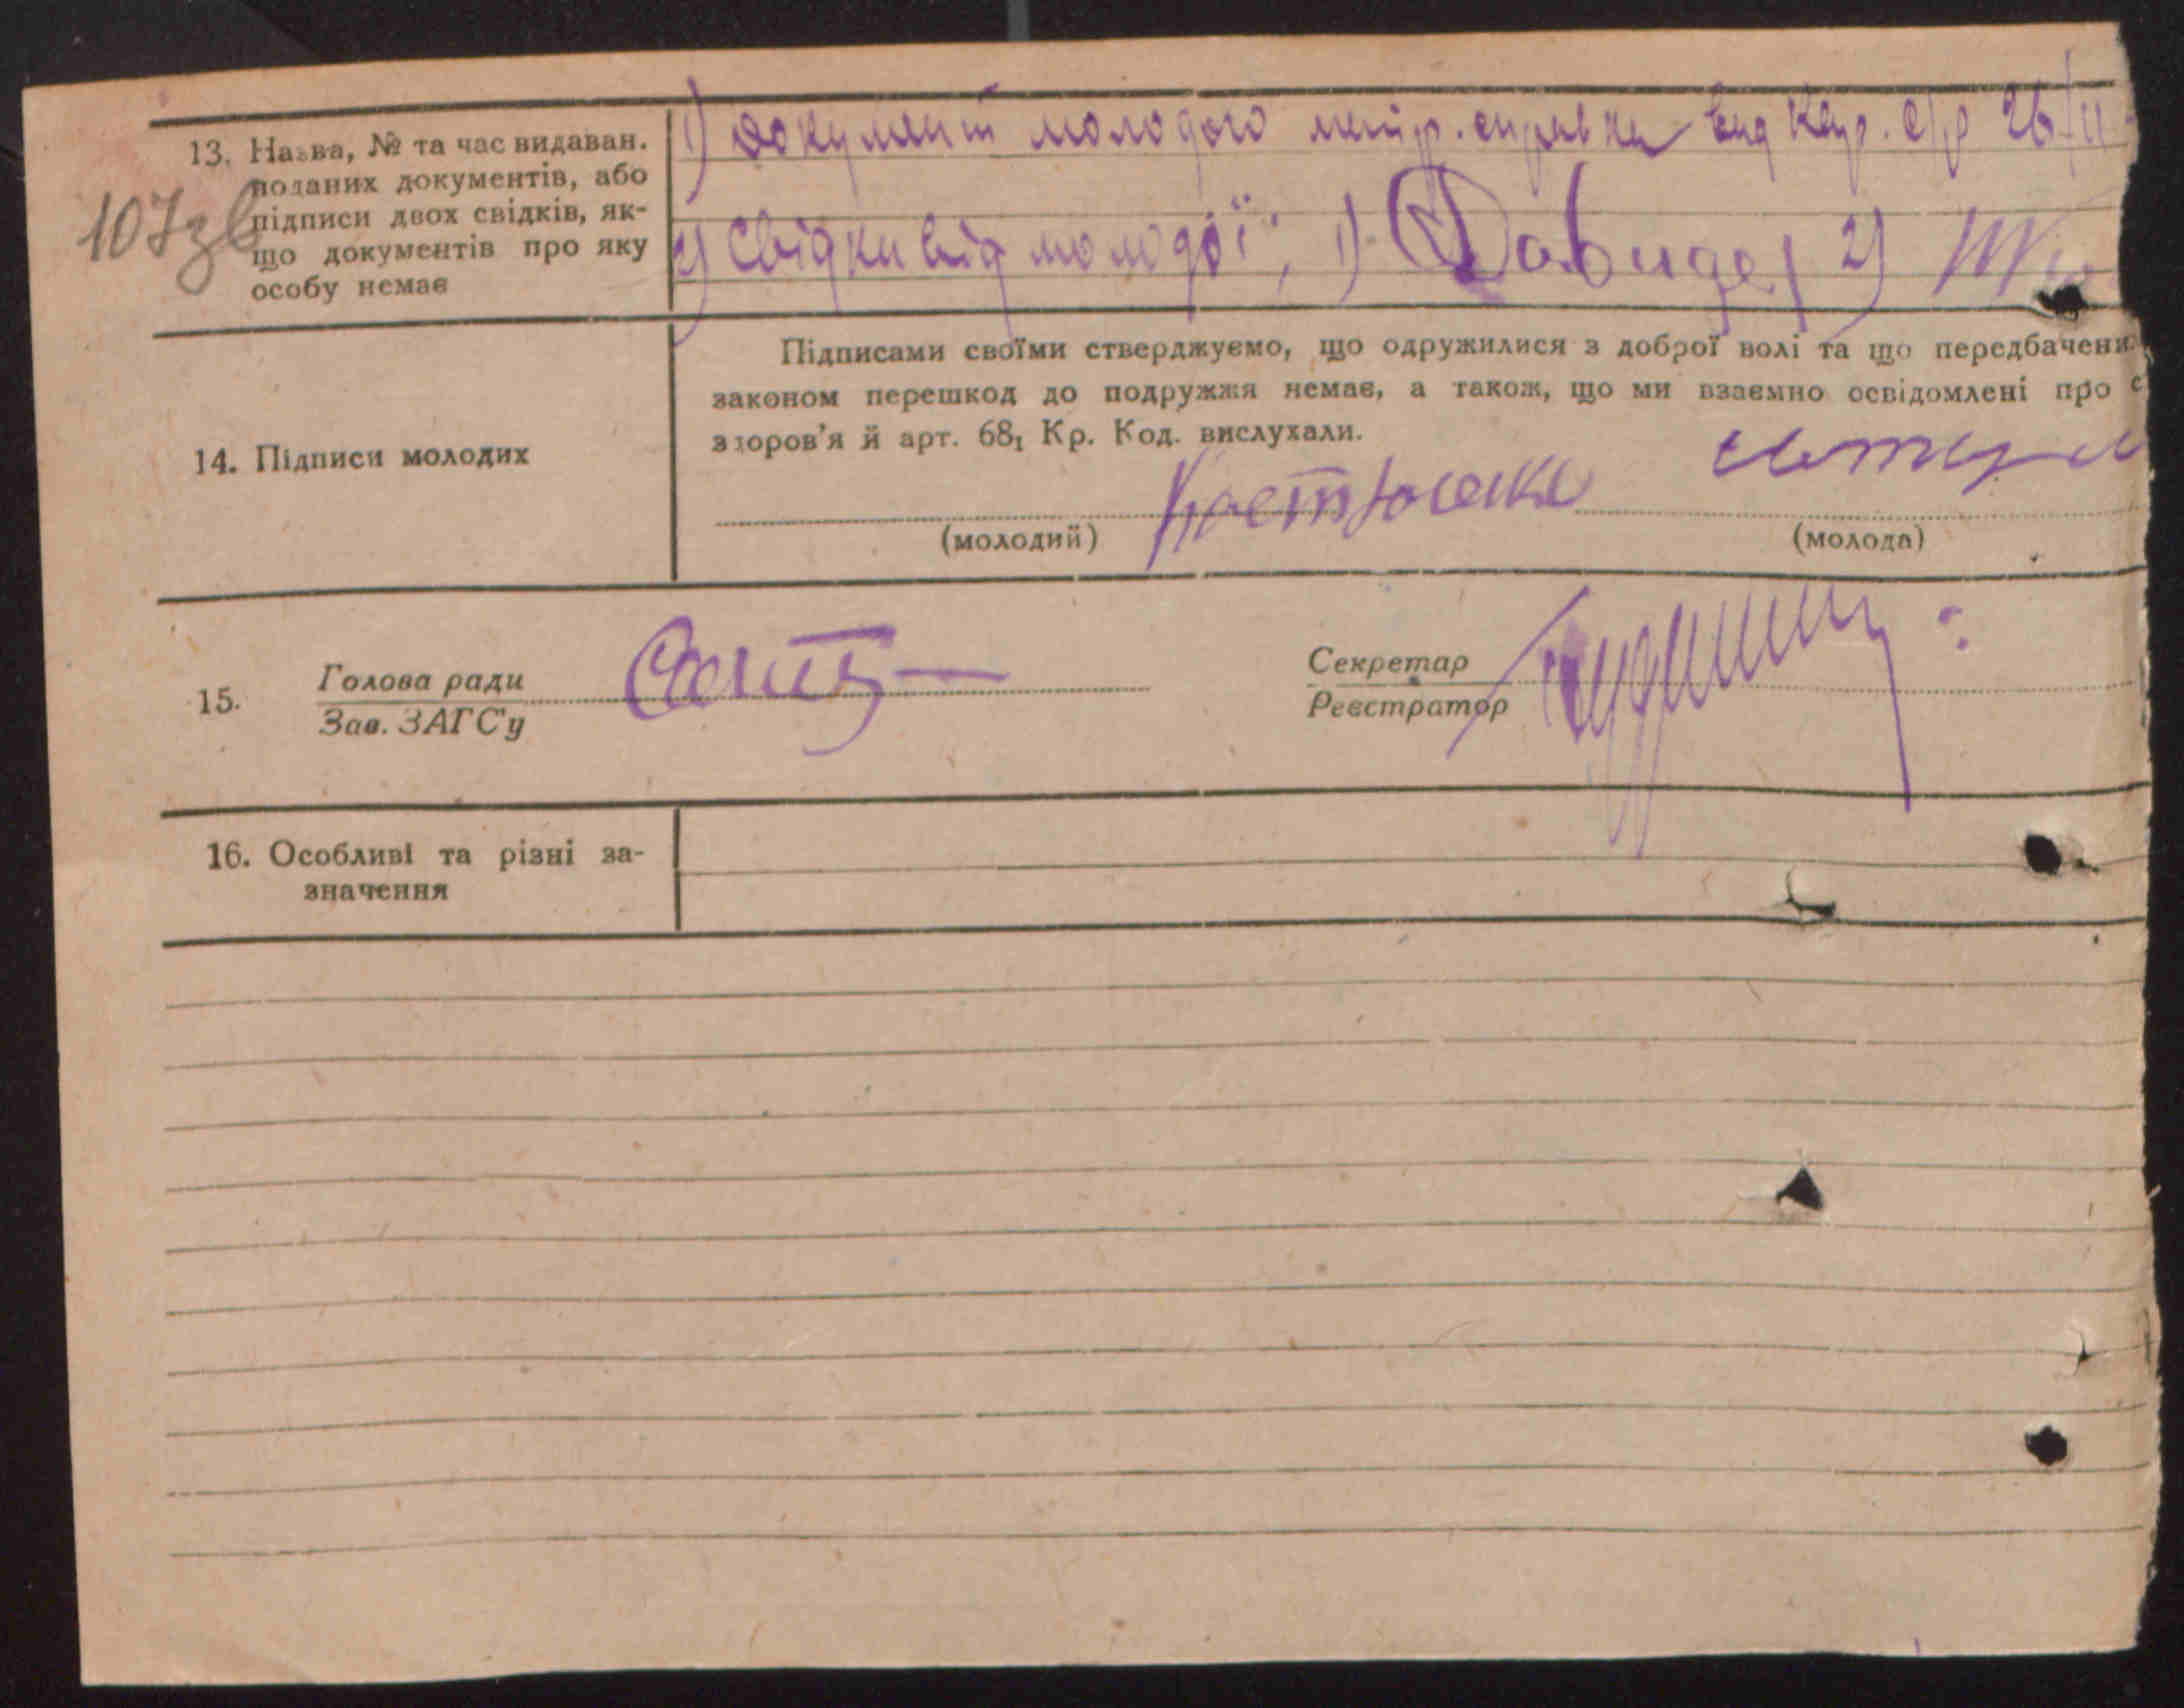 13. Назва, № та час видаван.
поданих документів, або
підписи двох свідків, як-
що документів про яку
особу немає
107зв
1) Документ молодого метр. справка від
2) Свідки від молодої; 1) Давиде 2)
14. Підписи молодих
Підписами своїми стверджуємо, що одружилися з доброї волі та що передбачени
законом перешкод до подружжя немає, а також, що ми взаємно освідомлені про с
здоров'я й арт. 68₁ Кр. Код. вислухали.
(молодий)
(молода)
15.
Голова ради
Зав. ЗАГС'у
Секретар
Реєстратор
16. Особливі та різні за-
значення